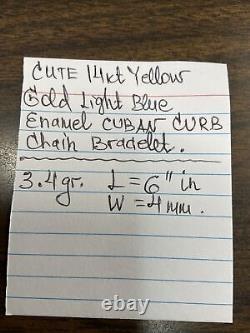 CUTE 14kt Yellow
Gold Light Blue
Enamel CUBAN CURB
Chain Bracelet.
3.4gr. L = 6" in
W = 4 mm.